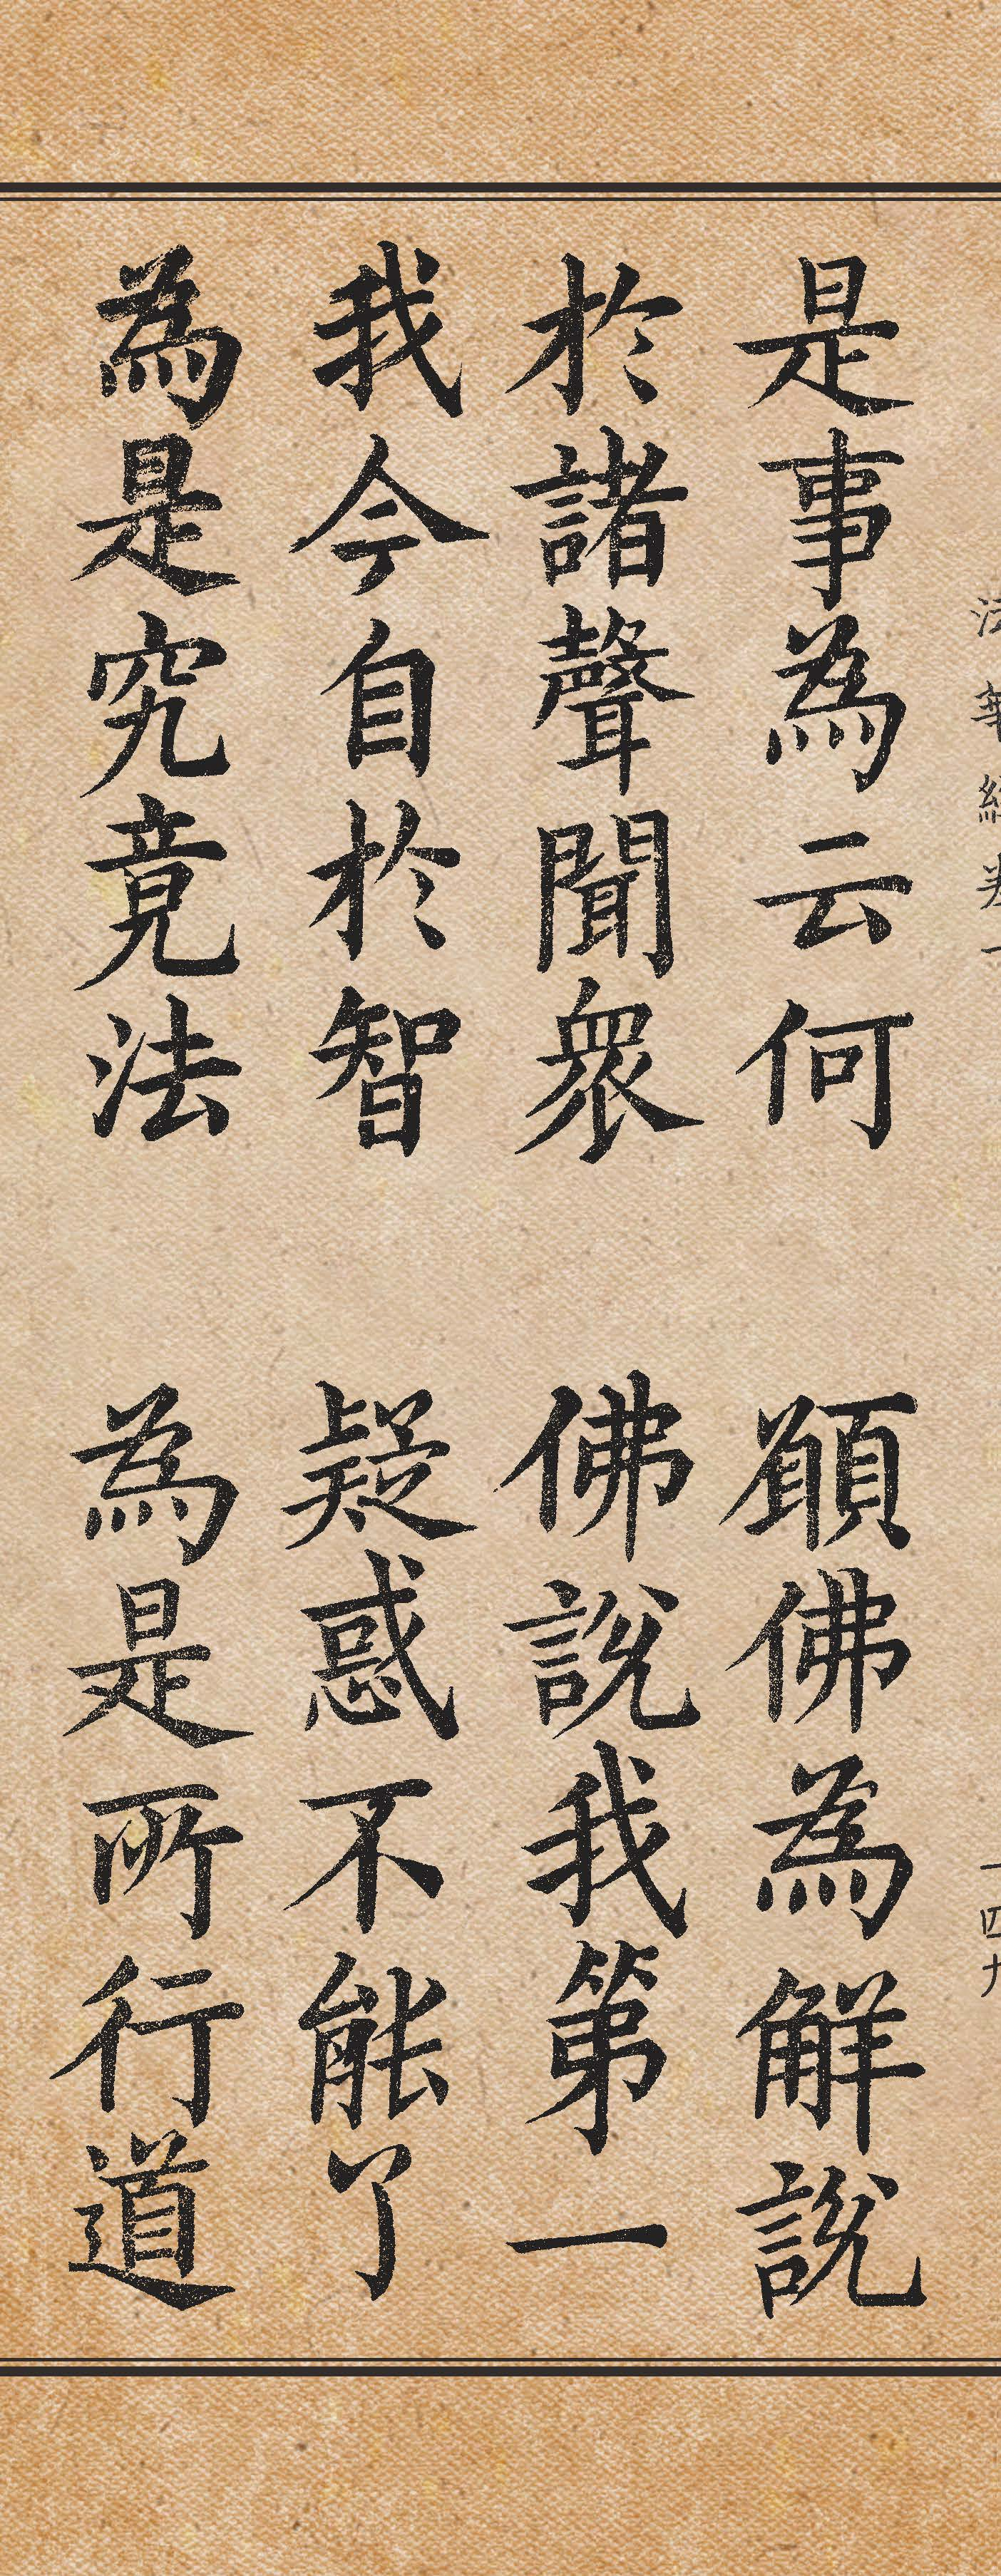 法華經卷一 一四九
是事為云何 願佛為解說
於諸聲聞眾 佛說我第一
我今自於智 疑惑不能了
為是究竟法 為是所行道